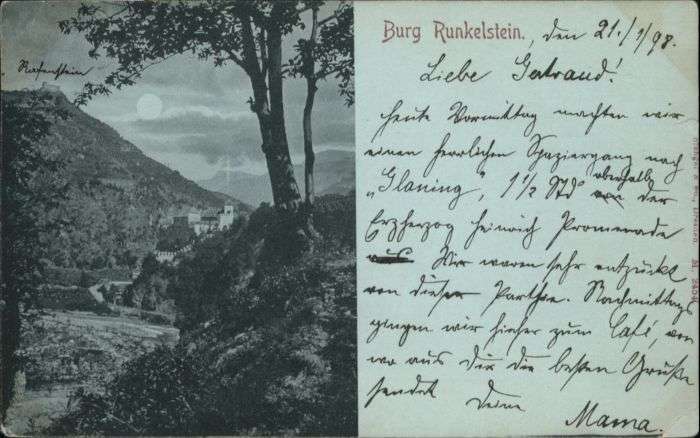 Burg Runkelstein.
den 21./1/98.
"Rafenstein
Liebe Gertraud!
heute Vormittag machten wir
einen herrlichen Spaziergang nach
"Glaning", 1 1/2 Std oberhalb der
Erzherzog Heinrich Promenade
Wir waren sehr entzückt
von dieser Parthie. Nachmittags
gingen wir hieher zum Café, von
wo aus Dir die besten Grüße
sendet Deine
Mama.